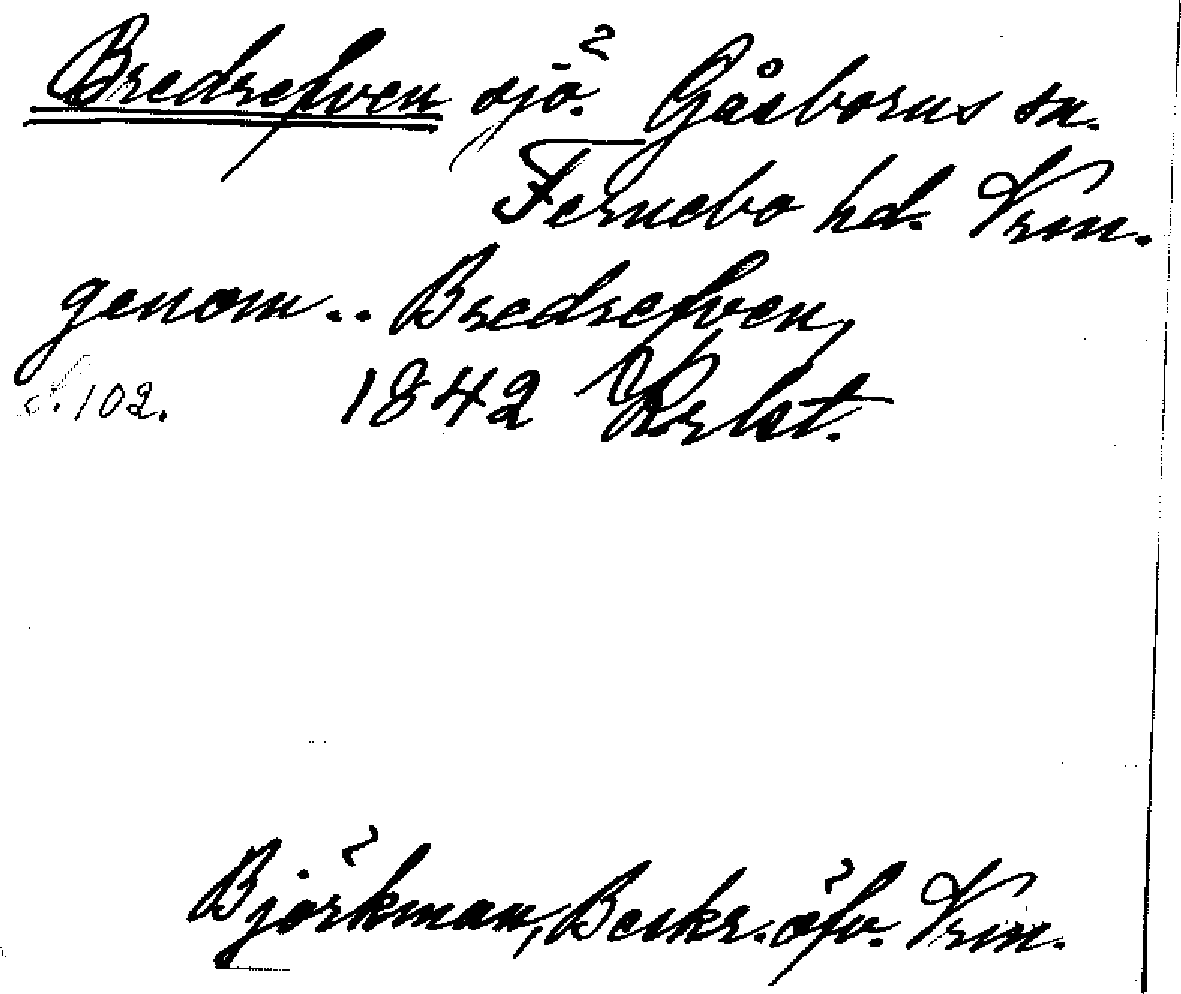 Bredrefven sjö. Gåsborns sn.
Fernebo hd. Vrm.
genom.. Bredrefven,
s. 102. 1842
Björkman, Beskr. öfv. Vrm.